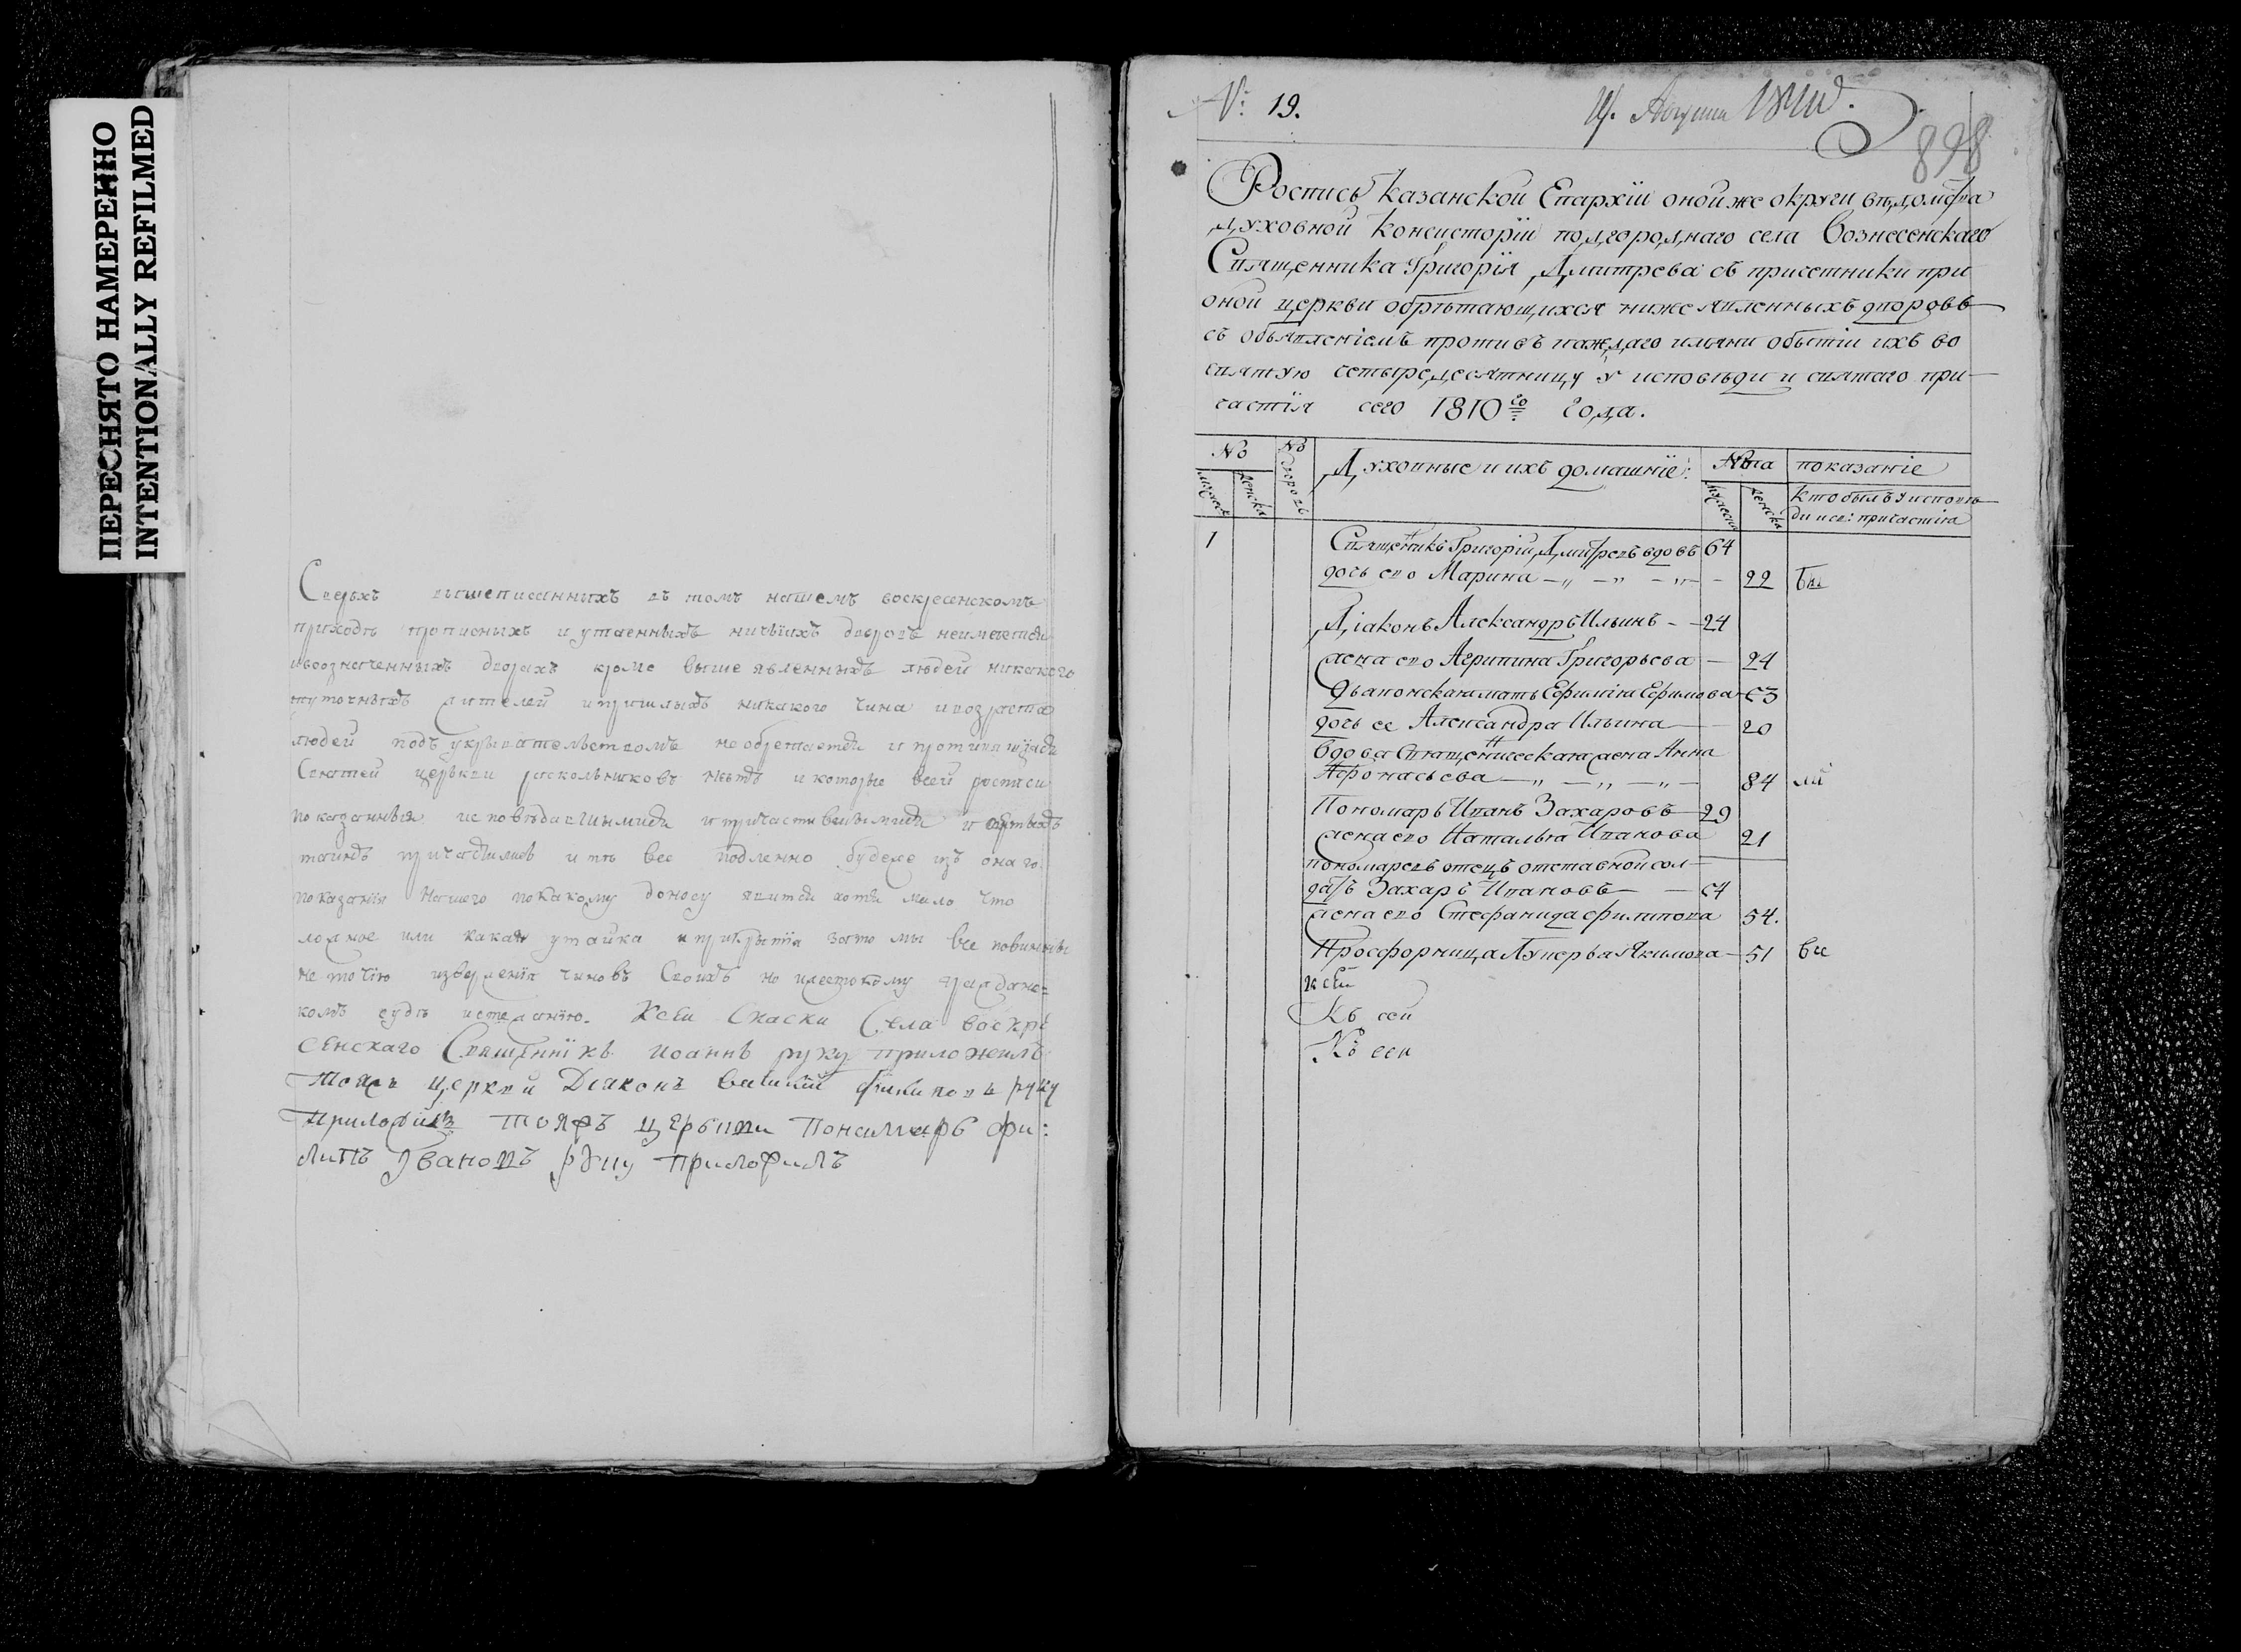 ПЕРЕСНЯТО НАМЕРЕННО
INTENTIONALLY REFILMED
Сверхъ вышеписанныхъ въ томъ нашемъ воскресенскомъ
приходѣ прописныхъ и утаенныхъ ничьихъ дворовъ неимѣется
ивоозначенныхъ дворахъ кроме выше явленныхъ людей никакого
жителей ипришлыхъ никакого чина ивозраста
людей подъ укрывательством не обретается и противящихся
Святей церькви раскольниковъ нѣтъ и которые всей росписи
показанныя исповѣдавшимися ипричастившимися и святыхъ
таинъ причастились и то все подленно будеже изъ онаго
показания нашего покакому доносу явится хотя мало что
ложное или какая утайка и прикрытия зато мы все повинны
не точию извержения чиновъ своихъ но ижестокому граждане=
комъ судѣ истезанию. Ксей Скаски Села воскре
сенскаго Священникъ Иоаннъ руку приложилъ
тояжъ церкви Диаконъ Василий Филиповъ руку
приложилъ тояжъ церькви Пономарь Фи:
липъ Ивановъ руку приложилъ
№: 19.
Августа 1810
898
Роспись Казанской Епархіи оной же округи вѣдомства
духовной Консисторіи подгороднаго села Вознесенскаго
Священника Григорія Дмитрева съ причетники при
оной церкви обрѣтающихся нижеявленныхъ дворовъ
съ объявленіемъ противъ каждаго имяни обытіи ихъ во
святую четыредесятницу у исповѣди и святаго при-
частія сего 1810го года.
№ № дворовъ Духовные и ихъ домашніе: Лѣта показаніе
мужеск женска мужеска женска кто былъ у исповѣ
ди и св: причастія
1 Священникъ Григорій Дмитревъ вдовъ 64
дочь ево Марина 22 бы
Діаконъ Александръ Ильинъ 24
жена ево Агрипина Григорьева 24
дьяконская мать Ефимія Ефимова 63
дочь ее Александра Ильина 20
вдова священическая жена Анна
Афонасьева 84 ли
Пономарь Иванъ Захаровъ 29
жена ево Наталья Иванова 21
пономаревъ отецъ отставной сол-
датъ Захаръ Ивановъ 64
жена ево Стефанида Филипова 54.
Просфорница Лукерья Якимова 51 все
к сей
Къ сей
Къ сей